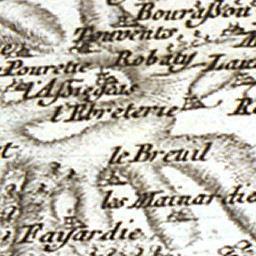 Bourasson
Touvents
Pouretie Robaty Lau
l'Assiesais
l'Ebreterie
le Breuil
les Mainardie
Faysardie